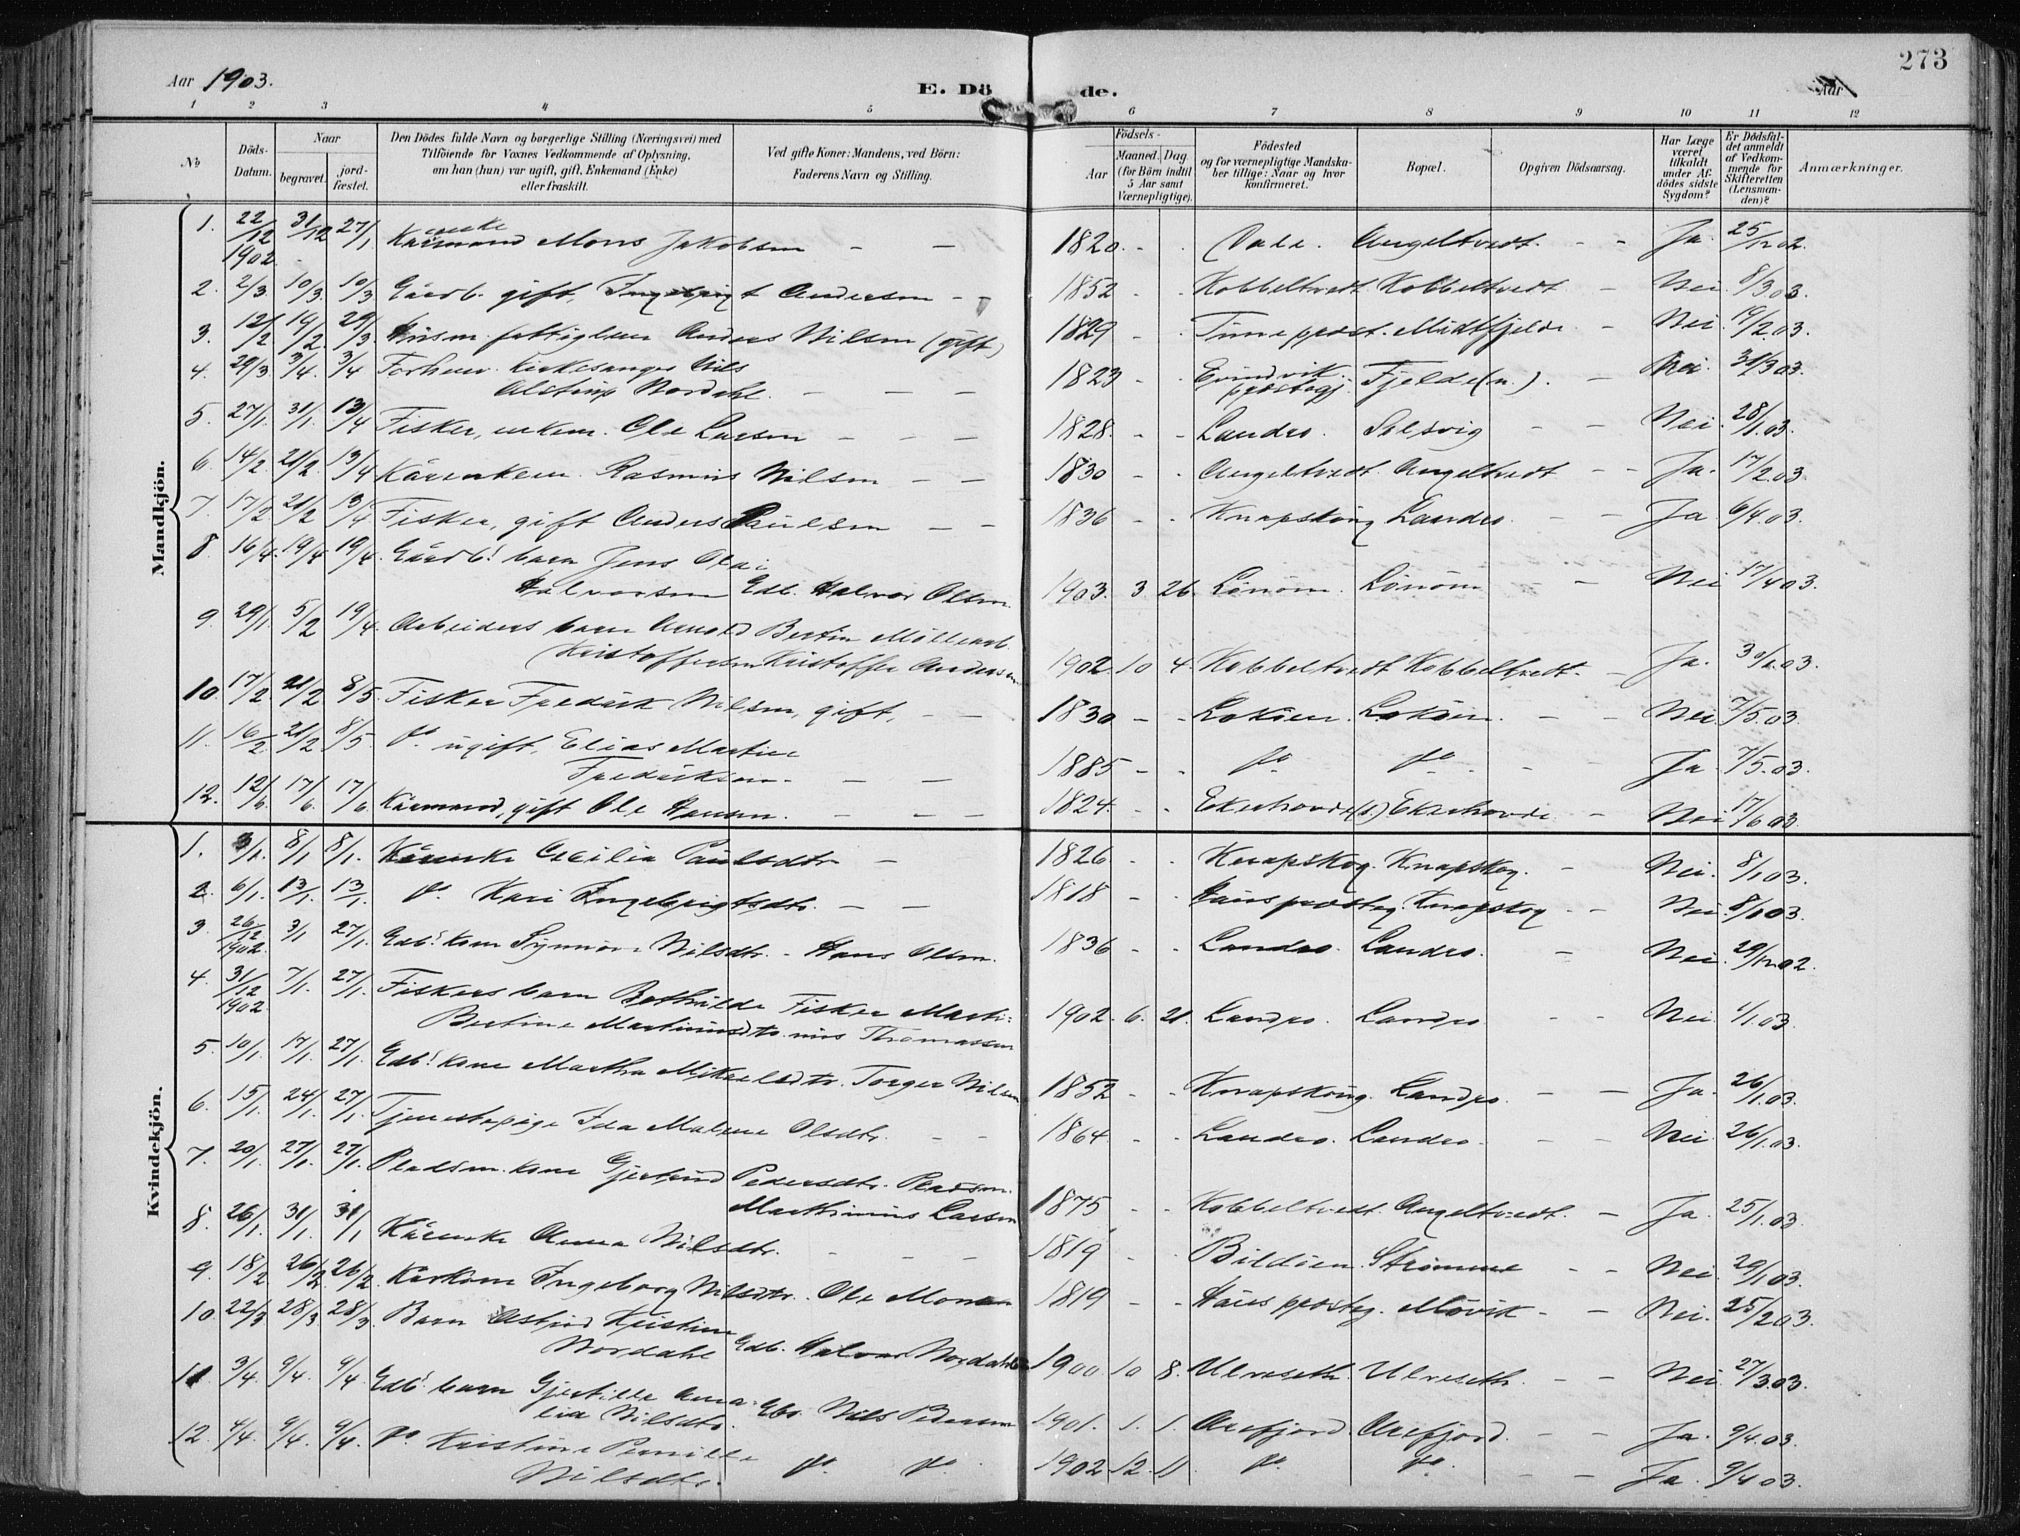 273
Aar 1903.
E. Dö de.
Aar
1 2 3 4 5 6 7 8 9 10 11 12
No
Döds-Datum.
Naar
begravet.
jord-fæstet.
Den Dödes fulde Navn og borgerlige Stilling (Næringsvei) med
Tilföiende for Voxnes Vedkommende af Oplysning,
om han (hun) var ugift, gift, Enkemand (Enke)
eller fraskilt.
Ved gifte Koner: Mandens, ved Börn:
Faderens Navn og Stilling.
Födsels-
Aar
Maaned. Dag
(for Börn indtil
5 Aar samt
Værnepligtige).
Födested
og for værnepligtige Mandska-
ber tillige: Naar og hvor
konfirmeret.
Bopæl.
Opgiven Dödsaarsag.
Har Læge
været
tilkaldt
under Af-
dödes sidste
Sygdom?
Er Dödsfal-
det anmeldt
af Vedkom-
mende for
Skifteretten
(Lensman-
den)?
Anmærkninger.
Mandkjön.
1. 22/12 1902 31/12 27/1 Kårmand Mons Jakobsen - - 1820. - - Vale. Angeltvedt. - - Ja. 25/12 02.
2. 2/3. 10/3. 10/3 Gårdb. gift, Ingebrigt Andersen - 1852 - - Kobbeltvedt. Kobbeltvedt - Nei 8/3 03.
3. 12/2 19/2. 29/3 Husm. fattiglem Anders Nilsen (gift) 1829 - - præst. Midtfjelde. - Nei. 14/2.03.
4. 29/3. 3/4. 3/4 Forhenv. Kirkesanger Nils
Alstrup Nordahl. - - - 1823 - - Evindvik præstegj. Fjelde (n.). - Nei. 31/3 03.
5. 27/1. 31/1. 13/4 Fisker, enkem. Ole Larsen - - - 1828. - - Landro. Solsvig - Nei. 28/1.03.
6. 14/2. 21/2. 13/4 Kårenkem. Rasmus Nilsen - - 1830 - - Angeltvedt Angeltvedt - - Ja. 17/2.03.
7. 17/2 21/2 13/4 Fisker, gift Anders Paulsen - - 1836 - - Knapskog Landro. - - Ja 6/4.03.
8. 16/4. 19/4 19/4. Gårdb! barn Jens Olai
Halvorsen Gdb. Halvor Olsen. 1903. 3 26. Lönöen. Lönöen - Nei 17/4 03.
9. 29/1. 5/2 19/4. Arbeiders barn Arnold Bertin Möllearb.
Kristoffersen Kristoffer Andersen 1902. 10 4. Kobbeltvedt Kobbeltvedt. - Ja. 30/1.03.
10. 17/2. 21/2 8/5. Fisker Fredrik Nilsen, gift, - - 1830 - - Loköen. Loköen. - - Nei 7/5.03.
11. 16/2 21/2 8/5. Do. ugift, Elias Martin
Fredriksen. - - 1885 - - Do. Do. - - Ja. 7/5.03.
12. 12/6. 17/6. 17/6 Kårmand, gift Ole Hansen. - - - 1824. - - Ekerhovde (s.) Ekerhovde. - Nei 17/6 03.
Kvindekjön.
1. 3/1. 8/1 8/1. Kårenke Cecilia Paulsdtr - 1826 - - Knapskog. Knapskog. - Nei. 8/1 03.
2. 6/1. 13/1. 13/1. Do. Kari Ingebrigtsdtr. - - 1818 - - Haus præsteg. Knapskog - - Nei 8/1 03.
3. 26/12 1902. 3/1 27/1. Gdb! kone Synnöve Nilsdtr. - Hans Olsen. 1836 - - Landro. Landro. - Nei. 29/12 02.
4. 31/12 1902 7/1. 27/1. Fiskers barn Bothilde Fisker Marti-
Bertine Martinusdtr. nus Thomassen 1902. 6. 21. Landro. Landro. - - Nei. 4/1.03.
5. 10/1. 17/1. 27/1. Gdb! kone Martha Mikkelsdtr. Torger Nilsen 1852 - - Knapskog. Landro. - - Ja. 26/1.03.
6. 15/1. 24/1. 27/1. Tjenestepige Ida Malene Olsdtr. - - 1864 - - Landro. Landro. - - Nei 26/1.03.
7. 20/1. 27/1. 27/1. Pladsm. kone Gjertrud Pedersdtr. Pladsm.
Marthinus Larsen 1875 - - Kobbeltvedt. Angeltvedt. - Ja. 25/1.03.
8. 26/1. 31/1. 31/1 Kårenke Anna Nilsdtr. - - - 1819 - - Bildöen. Strömme - - Nei. 29/1 03.
9. 18/2. 26/2 26/2 Kårkone Ingeborg Nilsdtr. Ole Monsen 1819 - - Haus præsteg. Mövik. - - Nei. 25/2 03.
10. 22/3 28/3 28/3. Barn Astrid Kristine
Nordahl Gdb. Halvor Nordahl 1900 10 8. Ulveseth. Ulveseth. - - Nei. 27/3.03.
11 3/4. 9/4. 9/4. Gdb! barn Gjertille Ama-
lia Nilsdtr. Gbr. Nils Pedersen 1901. 1. 1. Arefjord. Arefjord. - - Ja. 9/4.03.
12. 4/4. 9/4. 9/4. Do. Kristine Pernille
Nilsdtr. Do. Do. 1902 12. 11 Do. Do. - - Ja. 9/4 03.